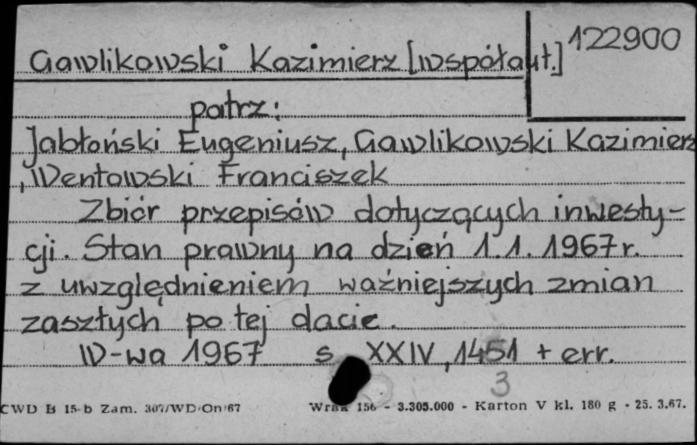 122900
Gawlikowski Kazimierz [współaut.]
patrz:
Jabłoński Eugeniusz, Gawlikowski Kazimierz
, Wentowski Franciszek
Zbiór przepisów dotyczących inwesty-
cji. Stan prawny na dzień 1.1.1967r.
z uwzględnieniem ważniejszych zmian
zaszłych po tej dacie.
W-wa 1967 s XXIV, 1451 + err.
3
CWD B 15-b Zam. 307/WD/On/67 Wrak 156 - 3.305.000 - Karton V kl. 180 g - 25. 3.67.